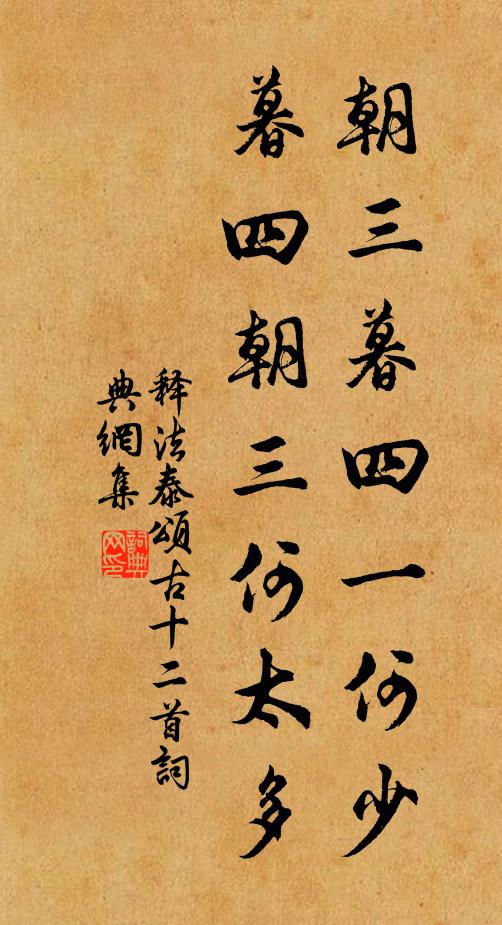 朝三暮四一何少
暮四朝三何太多
释法泰頌古十二首詞
典網集
詞典网印